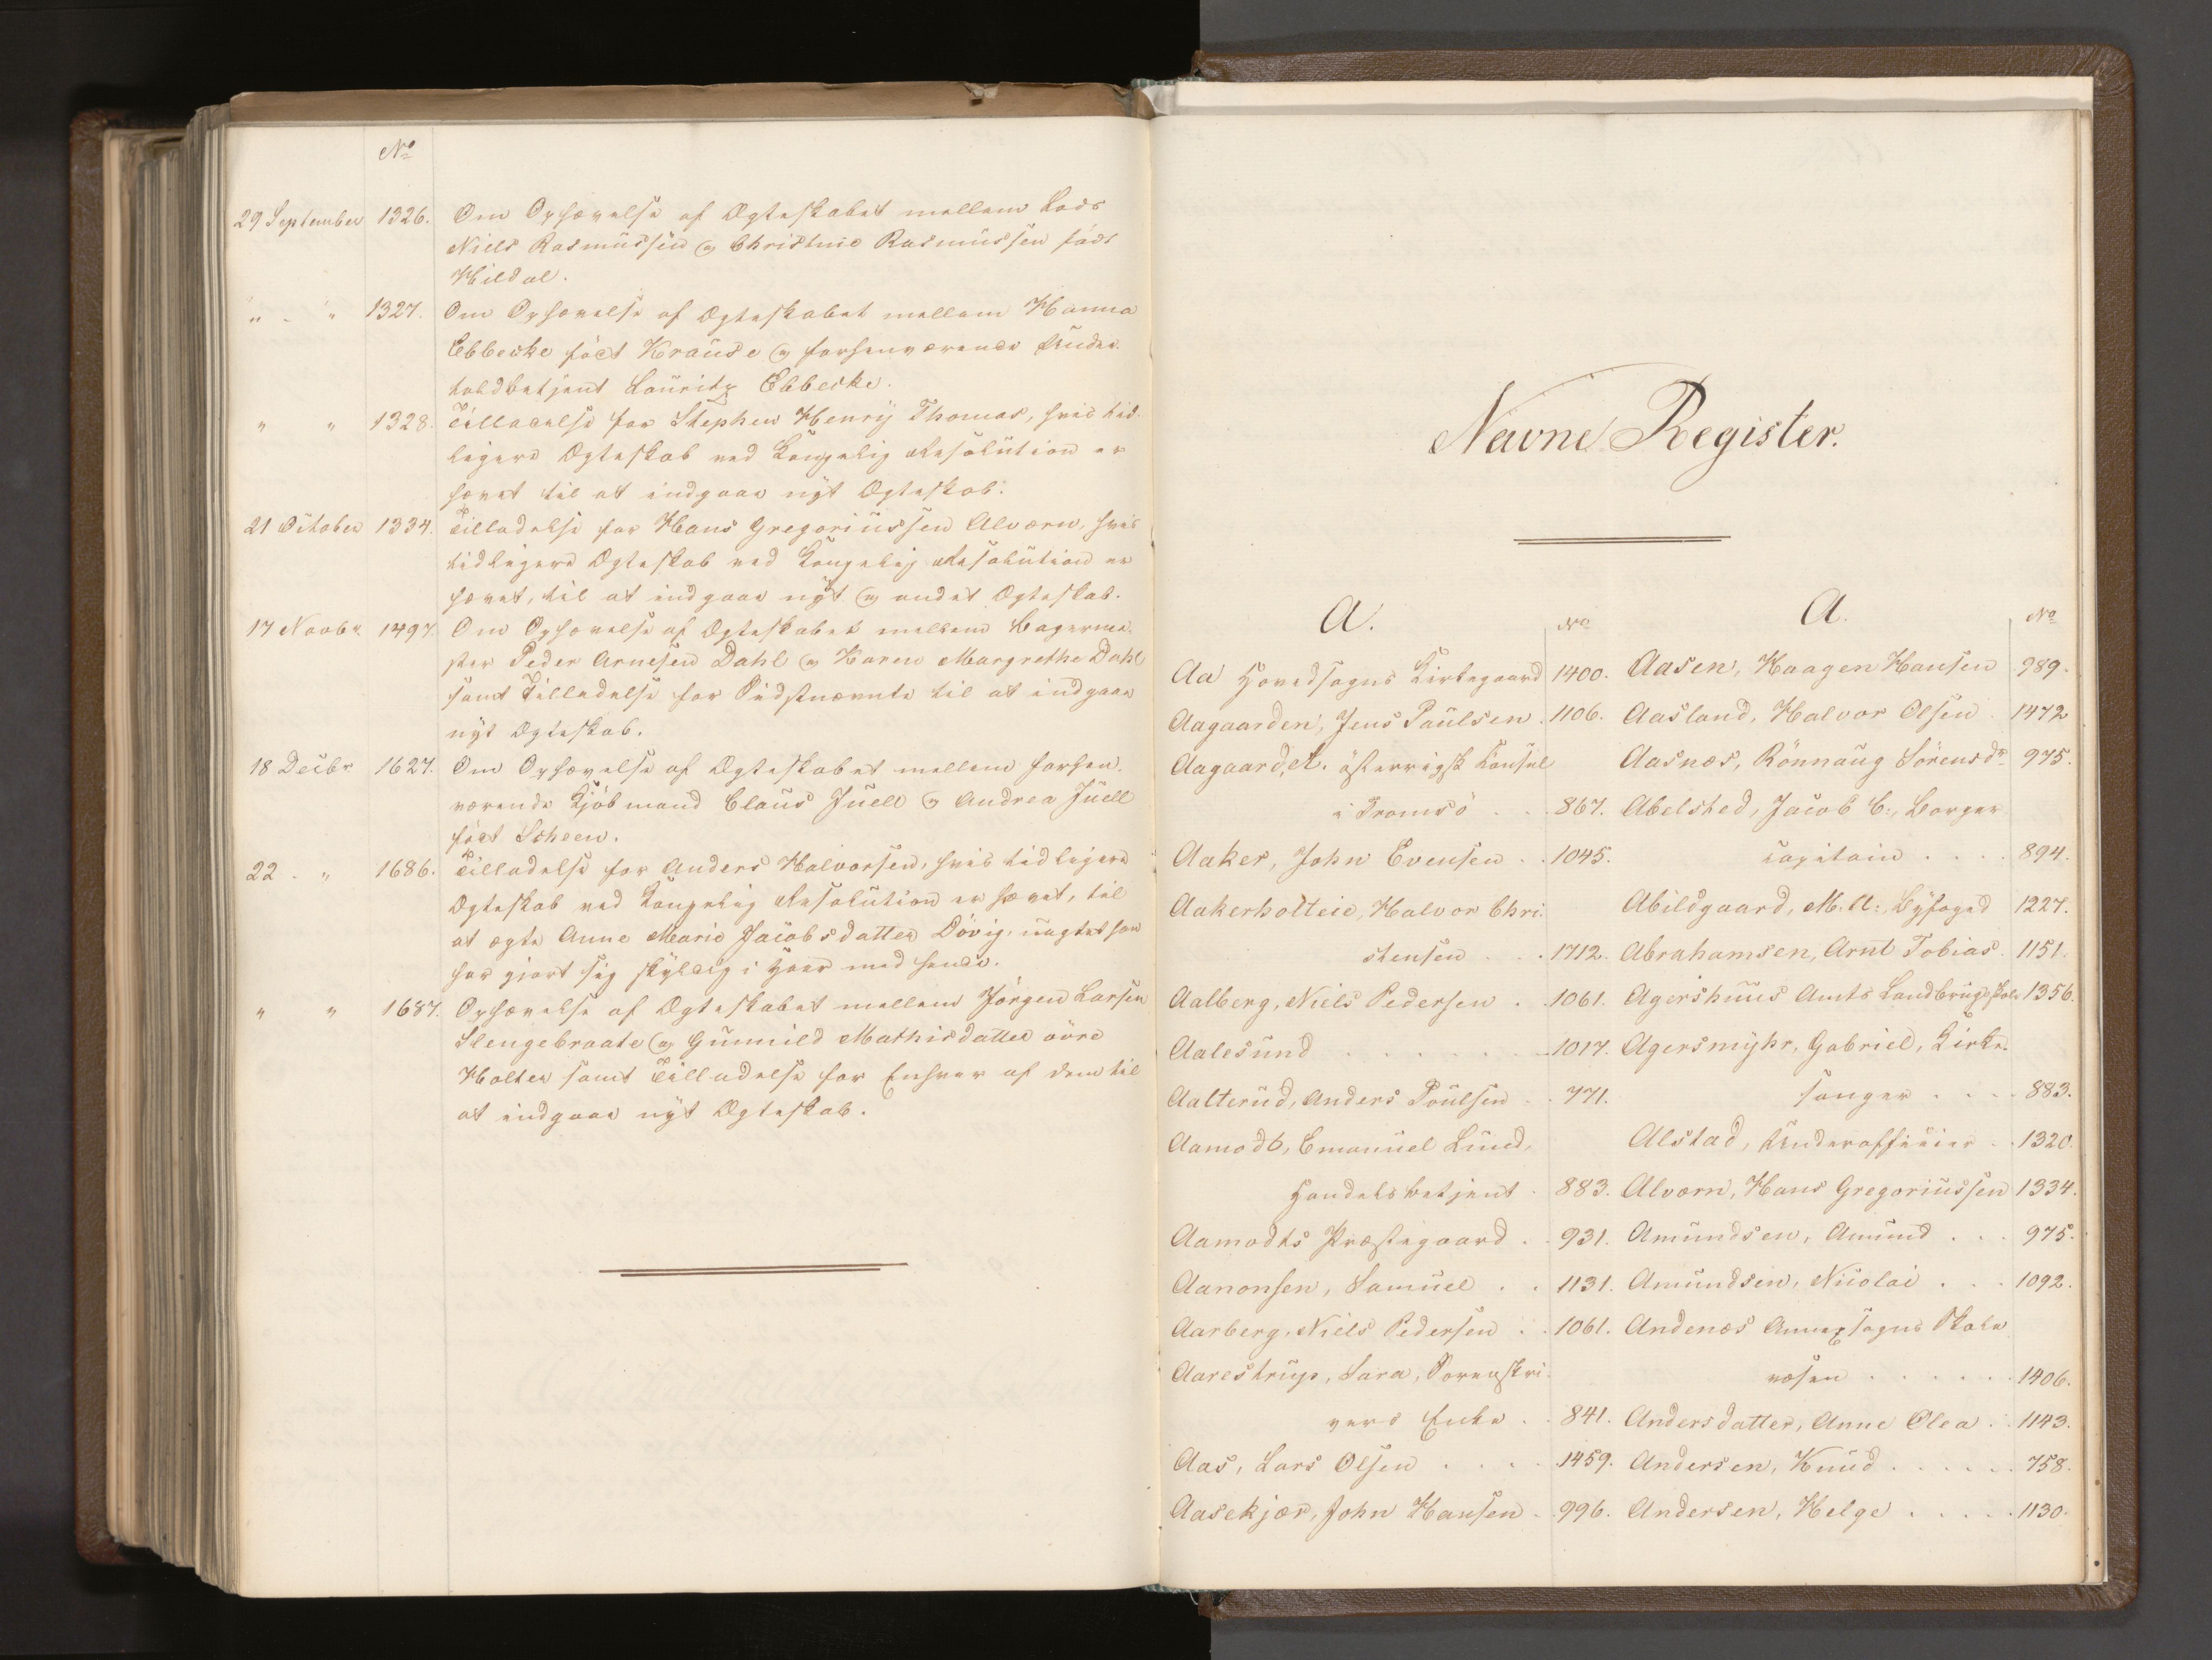 No
29 September 1326. Om Ophævelse af Ægteskabet mellem Lods
Niels Rasmussen og Christine Rasmussen født
Hildal.
" - " 1327. Om Ophævelse af Ægteskabet mellem Hanna
Ebbecke født Krause og forhenværende Under
toldbetjent Lauritz Ebbecke.
" " 1328. Tilladelse for Stephen Henry Thomas, hvis tid-
ligere Ægteskab ved Kongelig Resolution er
hævet til at indgaae nyt Ægteskab.
21 October 1334. Tilladelse for Hans Gregoriussen Alværn, hvis
tidligere Ægteskab ved Kongelig Resolution er
hævet, til at indgaae nyt og andet Ægteskab.
17 Novbr. 1497. Om Ophævelse af Ægteskabet mellem Bagerme-
ster Peder Arnesen Dahl og Karen Margrethe Dahl
samt Tilladelse for Sidstnævnte til at indgaae
nyt Ægteskab.
18 Decbr 1627. Om Ophævelse af Ægteskabet mellem forhen-
værende Kjöbmand Claus Juell og Andrea Juell
født Scheen.
22 - " 1686. Tilladelse for Anders Halvorsen, hvis tidligere
Ægteskab ved Kongelig Resolution er hævet, til
at ægte Anne Marie Jacobsdatter Dövig, uagtet han
har gjort sig skyldig i Hoer med hende.
" " 1687. Ophævelse af Ægteskabet mellem Jörgen Larsen
Slengebraate og Gunnild Mathisdatter övre
Holter samt Tilladelse for Enhver af dem til
at indgaae nyt Ægteskab.
Navne Register.
A. No
Aa Hovedsogns Kirkegaard 1400.
Aagaarden, Jens Paulsen . 1106.
Aagaard, A. østerrigsk Konsul
i Tromsö . . . 867.
Aaker, John Evensen . . 1045.
Aakerholteie, Halvor Chri-
stensen . . . 1712.
Aalberg, Niels Pedersen . 1061.
Aalesund . . . . . . . 1017.
Aalterud, Anders Poulsen . . 771.
Aamodt, Emanuel Lund,
Handelsbetjent . 883.
Aamodts Præstegaard . . 931.
Aanonsen, Samuel . . 1131.
Aarberg, Niels Pedersen . . 1061.
Aarestrup, Sara, Sorenskri-
vers Enke . . 841.
Aas, Lars Olsen . . . . 1459.
Aasekjær, John Hansen . . 996.
A. No
Aasen, Haagen Hansen 989.
Aasland, Halvor Olsen . 1472
Aasnæs, Rönnaug Sörensdr 975.
Abelsted, Jacob C., Borger
capitain . . . . 894.
Abildgaard, M. A:, Byfoged 1227.
Abrahamsen, Arnt Tobias. 1151.
Agershuus Amts Landbrugsskole 1356.
Agersmyhr, Gabriel, Kirke-
sanger . . . . 883.
Alstad, Underofficier . . 1320.
Alværn, Hans Gregoriussen 1334.
Amundsen, Amund . . . 975.
Amundsen, Nicolai . . . 1092.
Andenæs Annexsogns Skole
væsen . . . . . . 1406.
Andersdatter, Anne Olea . . 1143.
Andersen, Knud . . . . . . 758.
Andersen, Helge . . . . . 1130.